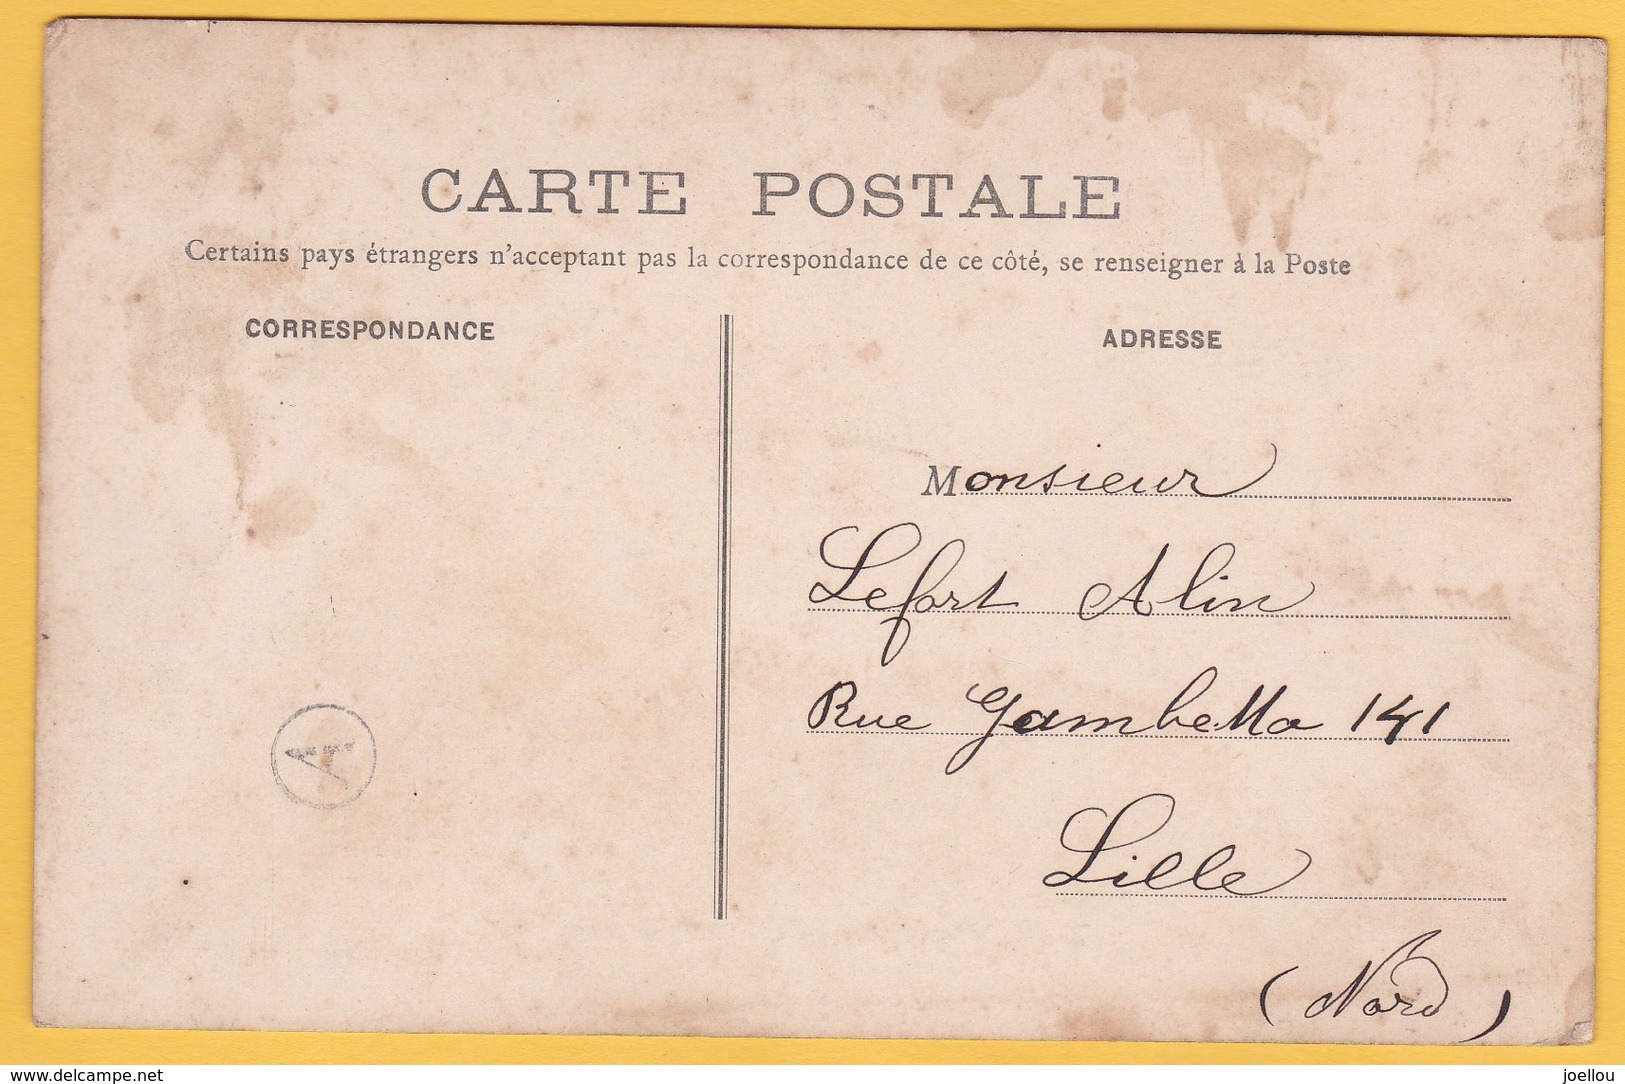 CARTE POSTALE
Certains pays étrangers n'acceptant pas la correspondance de ce côté, se renseigner à la Poste
CORRESPONDANCE
ADRESSE
Monsieur
Lefort Alin
Rue Gambetta 141
Lille
(Nord)
A
delcampe.net
joellou